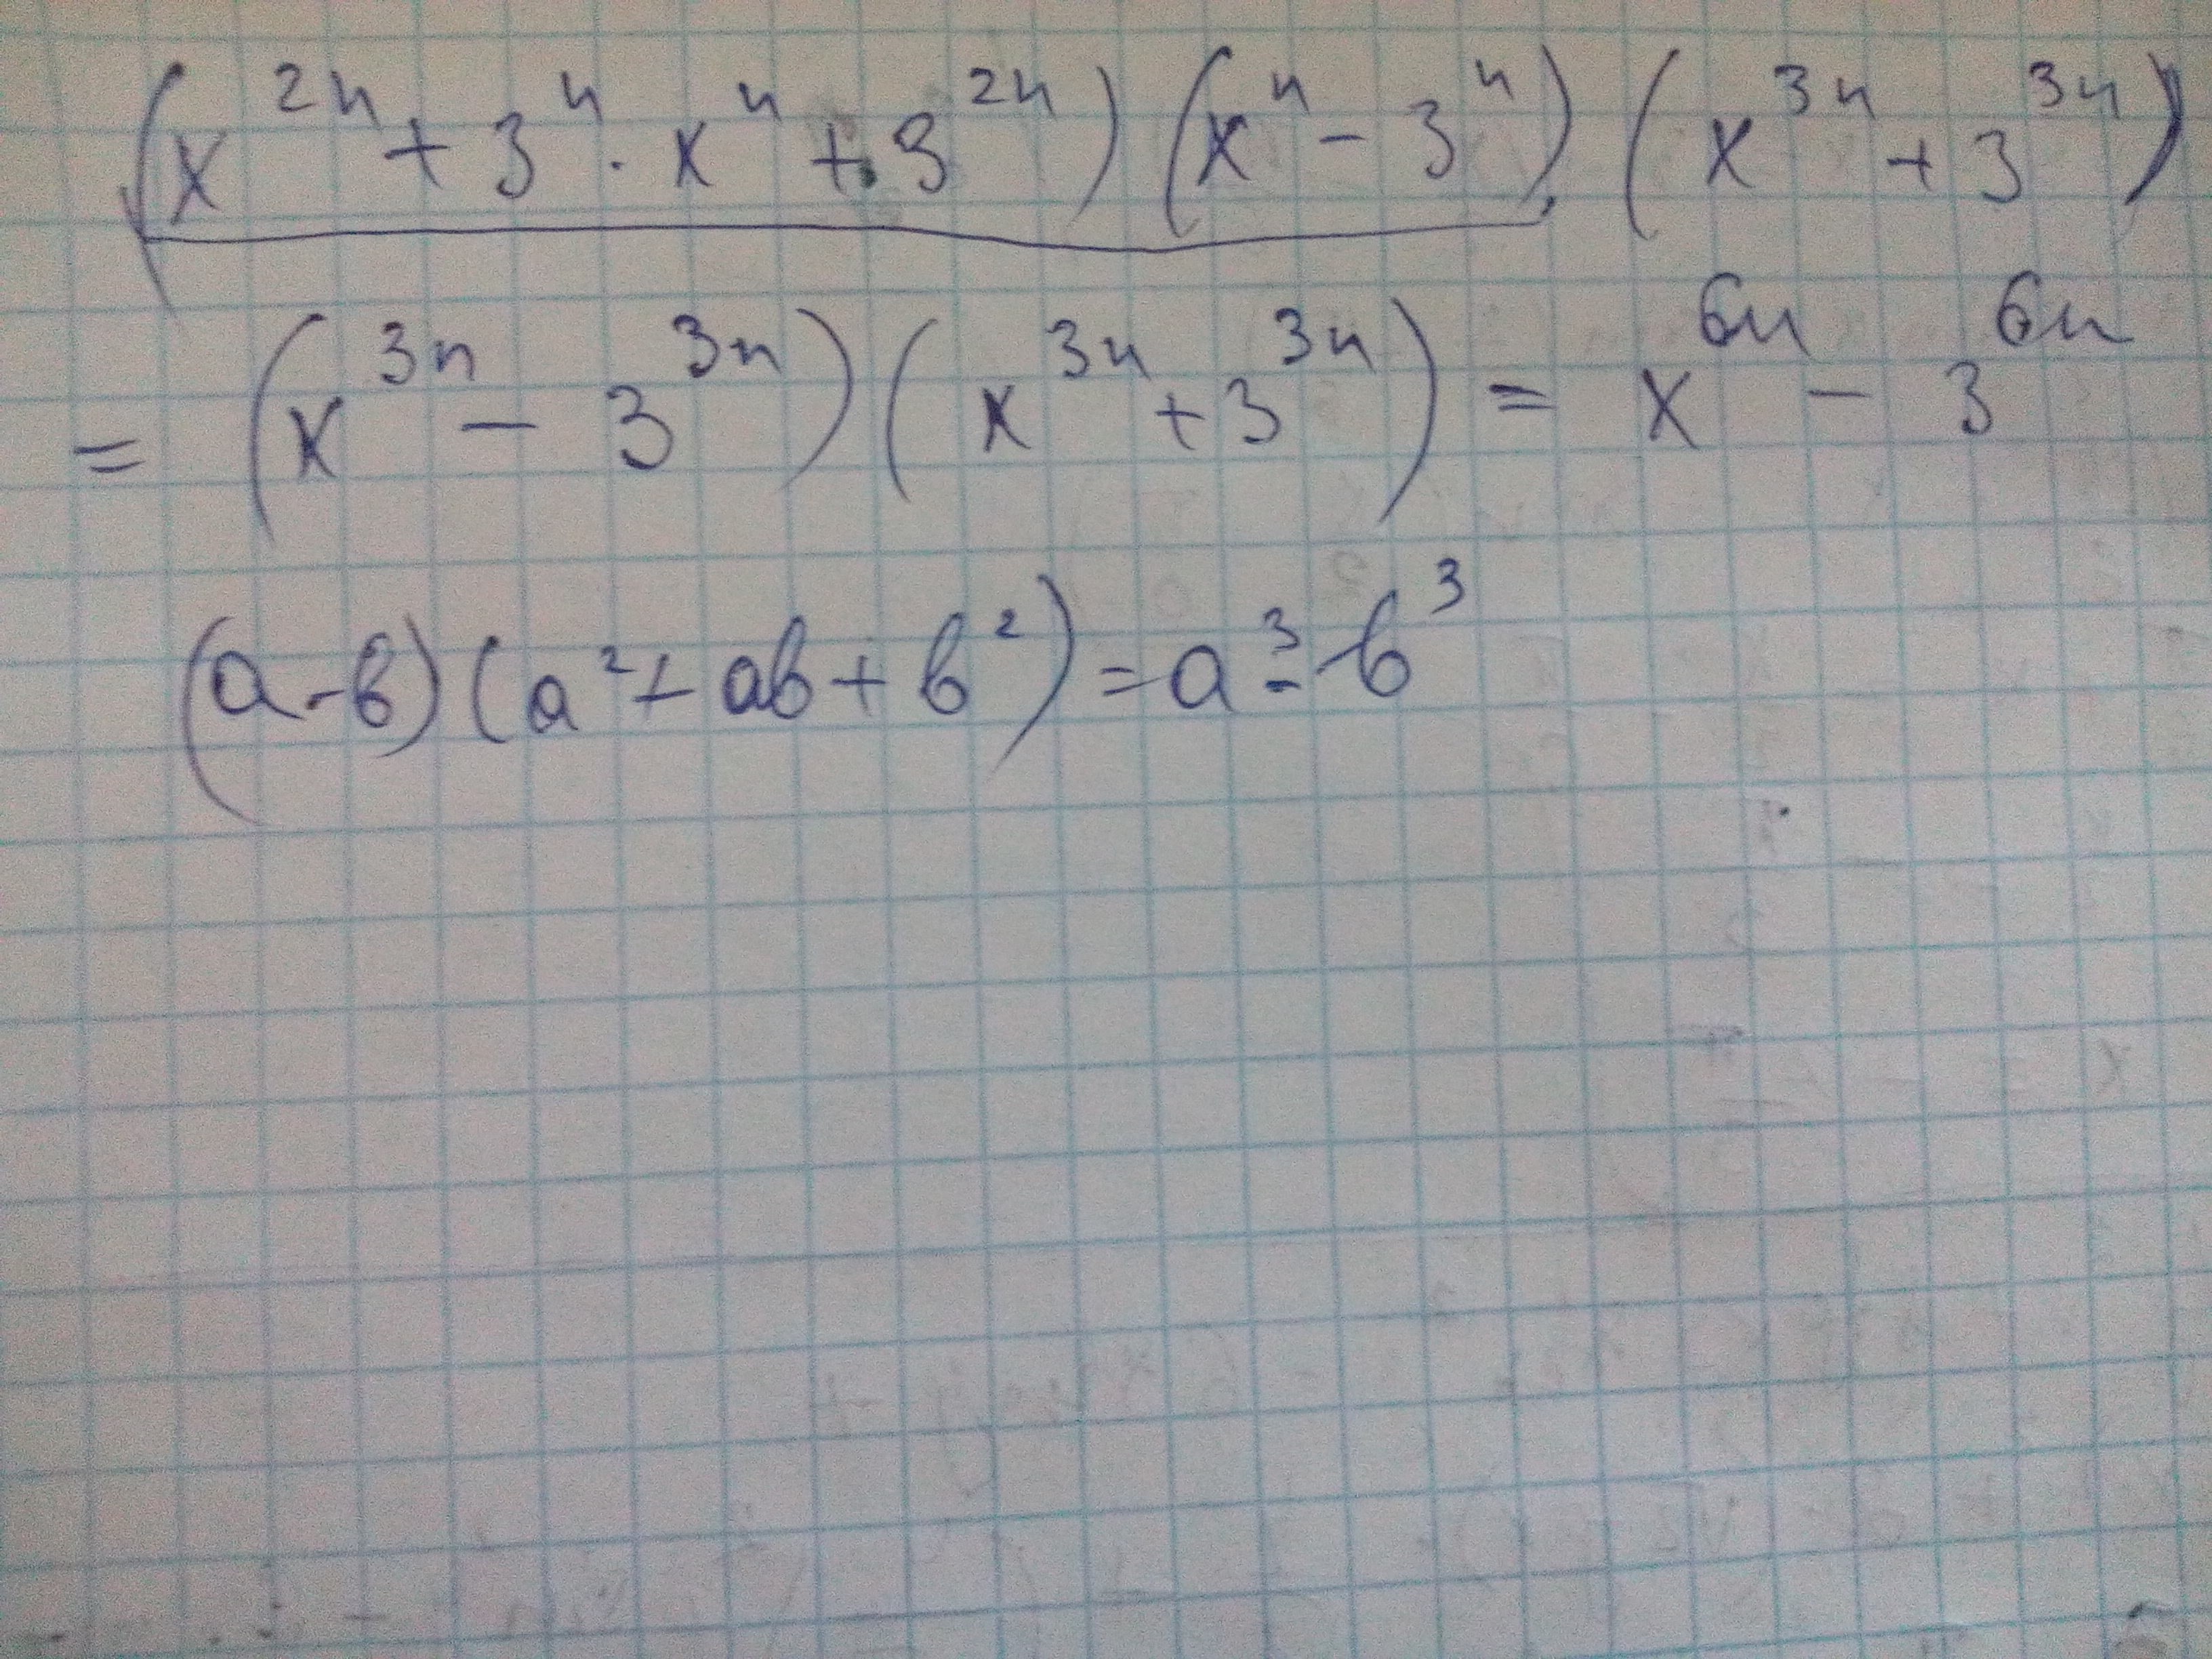 (x²ⁿ + 3ⁿ · xⁿ + 3²ⁿ)(xⁿ - 3ⁿ)(x³ⁿ + 3³ⁿ)
= (x³ⁿ - 3³ⁿ)(x³ⁿ + 3³ⁿ) = x⁶ⁿ - 3⁶ⁿ
(a-в)(a²+ aв + в²) = a³ - в³